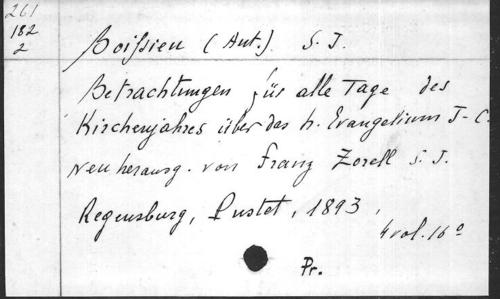 261
182
2
Boissieu (Ant.) S. J.
Betrachtungen für alle Tage des
Kirchenjahres über das h. Evangelium J-C.
Neu herausg. von Franz Zorell S. J.
Regensburg, Pustet, 1893,
4 vol. 16°
Pr.